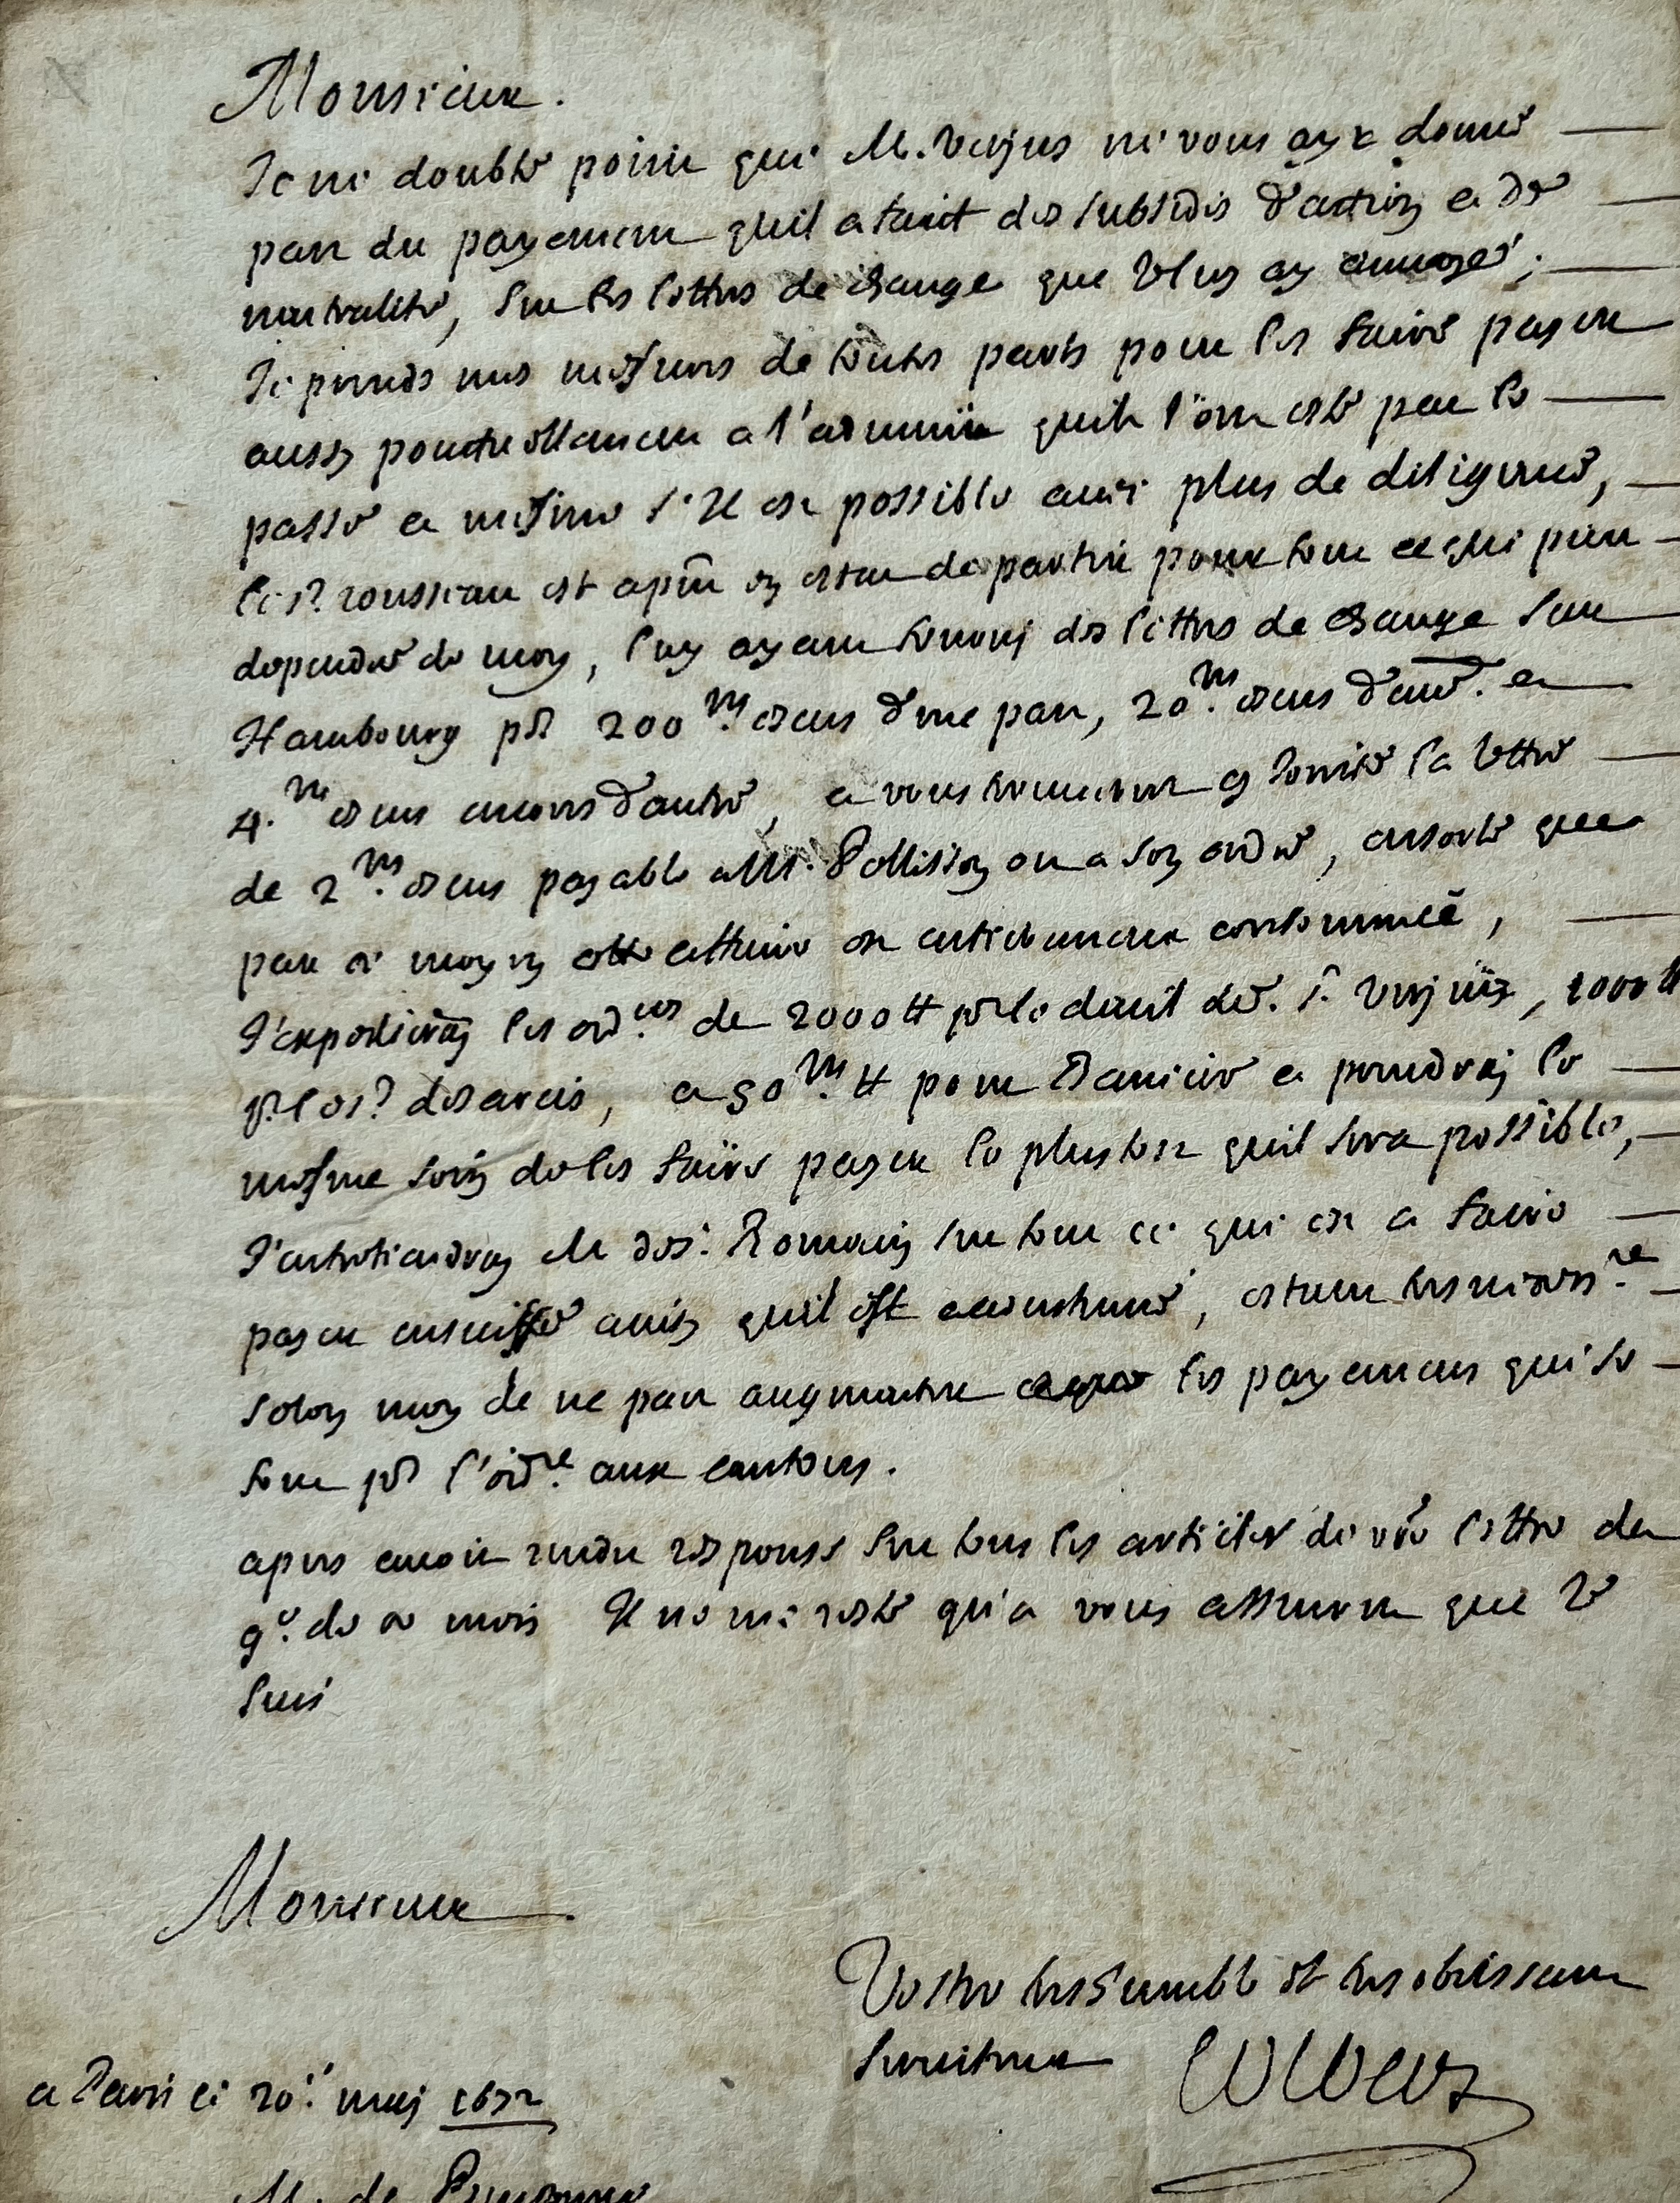 Monsieur.
Je ne doubte point que M. Verjus ne vous aye donné
part du payement qu'il a faict des subsides d'action et de
neutralité, sur les lettres de change que Je luy ay envoyé;
Je prends mes mesures de toutes parts pour les faire payer
aussy ponctuellement a l'advenir qu'ils l'ont esté par le
passé et mesme s'Il est possible avec plus de diligence,
le sr. rousseau est apñt en estat de partir pour tout ce qui peut
dependre de moy, luy ayant fourny des lettres de change sur
Hambourg pr 200 m. escus d'une part, 20 m. escus d'autre. et
4. m escus encores d'autre, et vous trouverez cy Joincte la lettre
de 2 m. escus payable a Mr. Pollisson ou a son ordre, ensorte que
par ce moyen cette affaire est entierement consommeé,
J'expedieray les ordces de 2000 tt pr le deuil de. sr. Verjus, 1000 tt
pr. le sr. desareis, et 50 m. tt pour et prendray le
mesme soin de les faire payer le plustost qu'il sera possible,
J'entretiendray M de st. Romain sur tout ce qui est a faire
payer en suisse ainsy qu'il est accoustumé, estant tres necessre.
selon moy de ne pas augmenter les payemens qui se
font pr l'ordre. aux cantons.
apres avoir rendu response sur tous les articles de vrē lettre du
9e. de ce mois Il ne me reste qu'a vous asseurer que Je
suis
Monsieur
Vostre tres humble et tres obeissant
serviteur Colbert
a Paris ce 20e. may 1672
M. de Pomponne